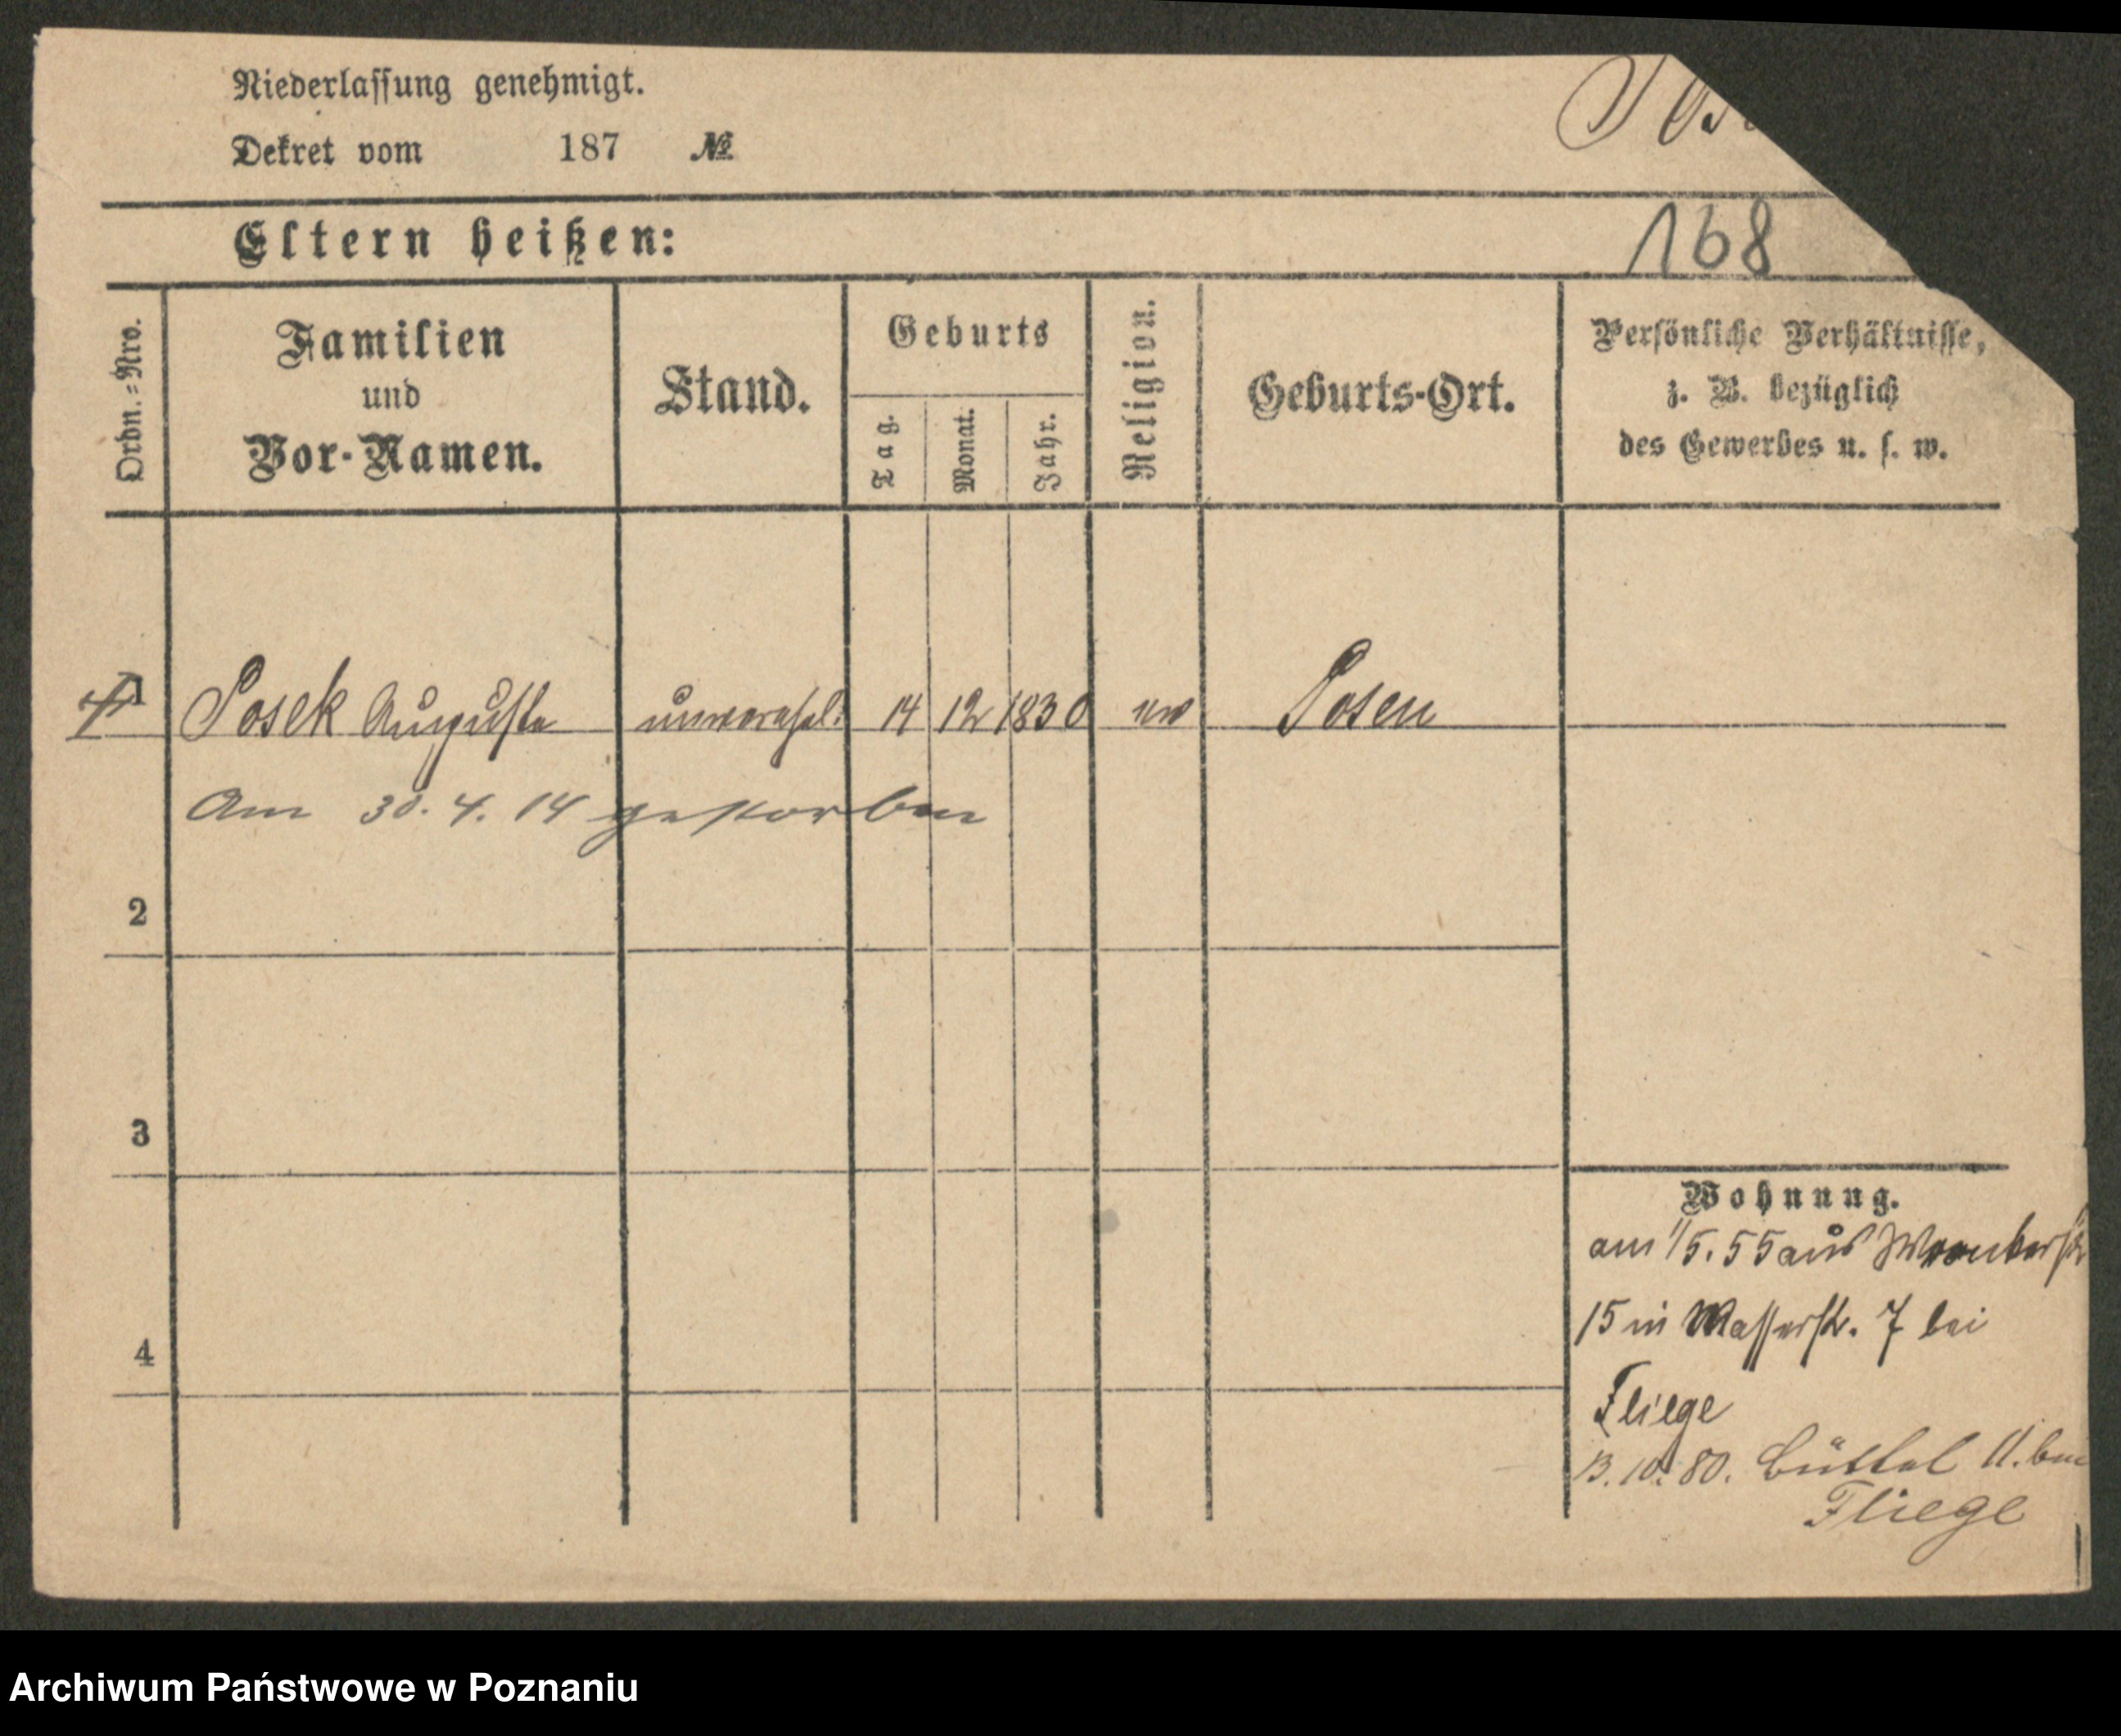 Niederlassung genehmigt.
Dekret vom 187 №
Eltern heißen:
168
Ordn.=Nro.
Familien
und
Vor-Namen.
Stand.
Geburts
Tag.
Monat.
Jahr.
Religion.
Geburts-Ort.
Persönliche Verhältnisse,
z. B. bezüglich
des Gewerbes u. s. w.
1 Posek Auguste unverehel: 14 12 1830 Posen
Am 30. 4. 14 gestorben
2
3
4
Wohnung.
am 1/5. 55 aus
15 in Wasserstr. 7 bei
Fliege
13. 10. 80. Büttel 11. bei
Fliege
Archiwum Państwowe w Poznaniu